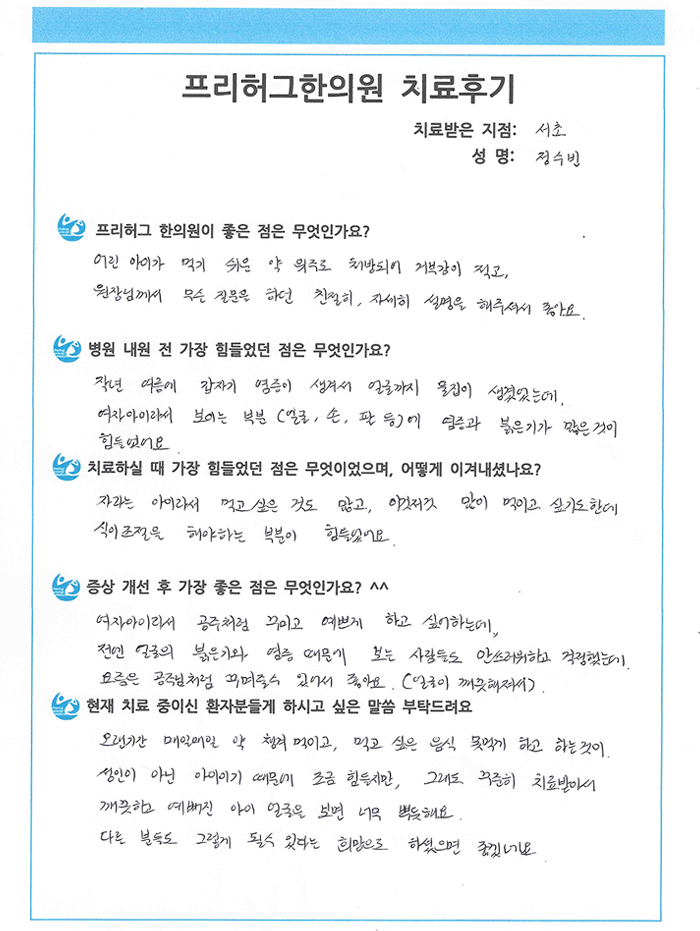 프리허그한의원 치료후기
치료받은 지점: 서초
성 명: 정수빈
프리허그 한의원이 좋은 점은 무엇인가요?
어린 아이가 먹기 쉬운 약 위주로 처방되어 거부감이 적고,
원장님께서 무슨 질문을 하던 친절히, 자세히 설명을 해주셔서 좋아요.
병원 내원 전 가장 힘들었던 점은 무엇인가요?
작년 여름에 갑자기 염증이 생겨서 얼굴까지 물집이 생겼었는데,
여자아이라서 보이는 부분 (얼굴, 손, 팔 등)에 염증과 붉은기가 많은것이
힘들었어요.
치료하실 때 가장 힘들었던 점은 무엇이었으며, 어떻게 이겨내셨나요?
자라는 아이라서 먹고싶은 것도 많고, 이것저것 많이 먹이고 싶기도한데
식이조절을 해야하는 부분이 힘들었어요.
증상 개선 후 가장 좋은 점은 무엇인가요? ^^
여자아이라서 공주처럼 꾸미고 예쁘게 하고 싶어하는데,
전엔 얼굴의 붉은기와 염증 때문에 보는 사람들도 안쓰러워하고 걱정했는데.
요즘은 공주님처럼 꾸며줄수 있어서 좋아요. (얼굴이 깨끗해져서).
현재 치료 중이신 환자분들게 하시고 싶은 말씀 부탁드려요
오랜기간 매일매일 약 챙겨 먹이고, 먹고 싶은 음식 못먹게 하고 하는것이.
성인이 아닌 아이이기 때문에 조금 힘들지만, 그래도 꾸준히 치료받아서
깨끗하고 예뻐진 아이 얼굴을 보면 너무 뿌듯해요.
다른 분들도 그렇게 될수 있다는 희망으로 하셨으면 좋겠네요.